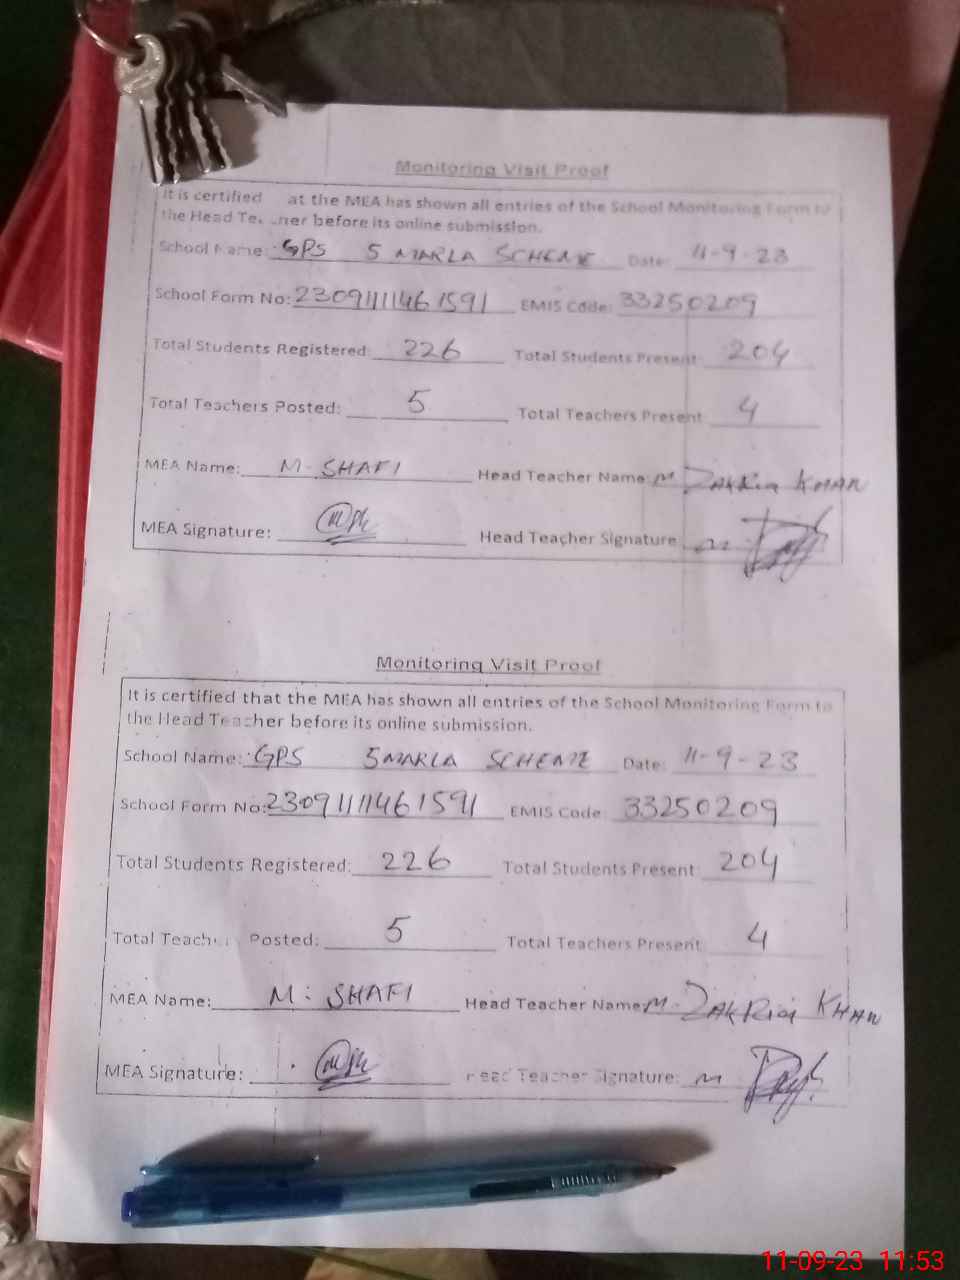 Monitoring Visit Proof
It is certified at the MEA has shown all entries of the School Monitoring Form to
the Head Te. .ner before its online submission.
School Name: GPS 5 MARLA SCHEME Date: 11-9-23
School Form No: 2309111461591 EMIS Code: 33250209
Total Students Registered: 226 Total Students Present: 204
Total Teachers Posted: 5 Total Teachers Present 4
MEA Name: M. SHAFI Head Teacher Name: M ZAKRia KHAN
MEA Signature: Head Teacher Signature
Monitoring Visit Proof
It is certified that the MEA has shown all entries of the School Monitoring Form to
the Head Teacher before its online submission.
School Name: GPS 5 MARLA SCHEME Date: 11-9-23
School Form No: 2309111461591 EMIS Code: 33250209
Total Students Registered: 226 Total Students Present: 204
Total Teach Posted: 5 Total Teachers Present 4
MEA Name: M. SHAFI Head Teacher Name M. ZAKRia KHAN
MEA Signature: Head Teacher Signature:
11-09-23 11:53